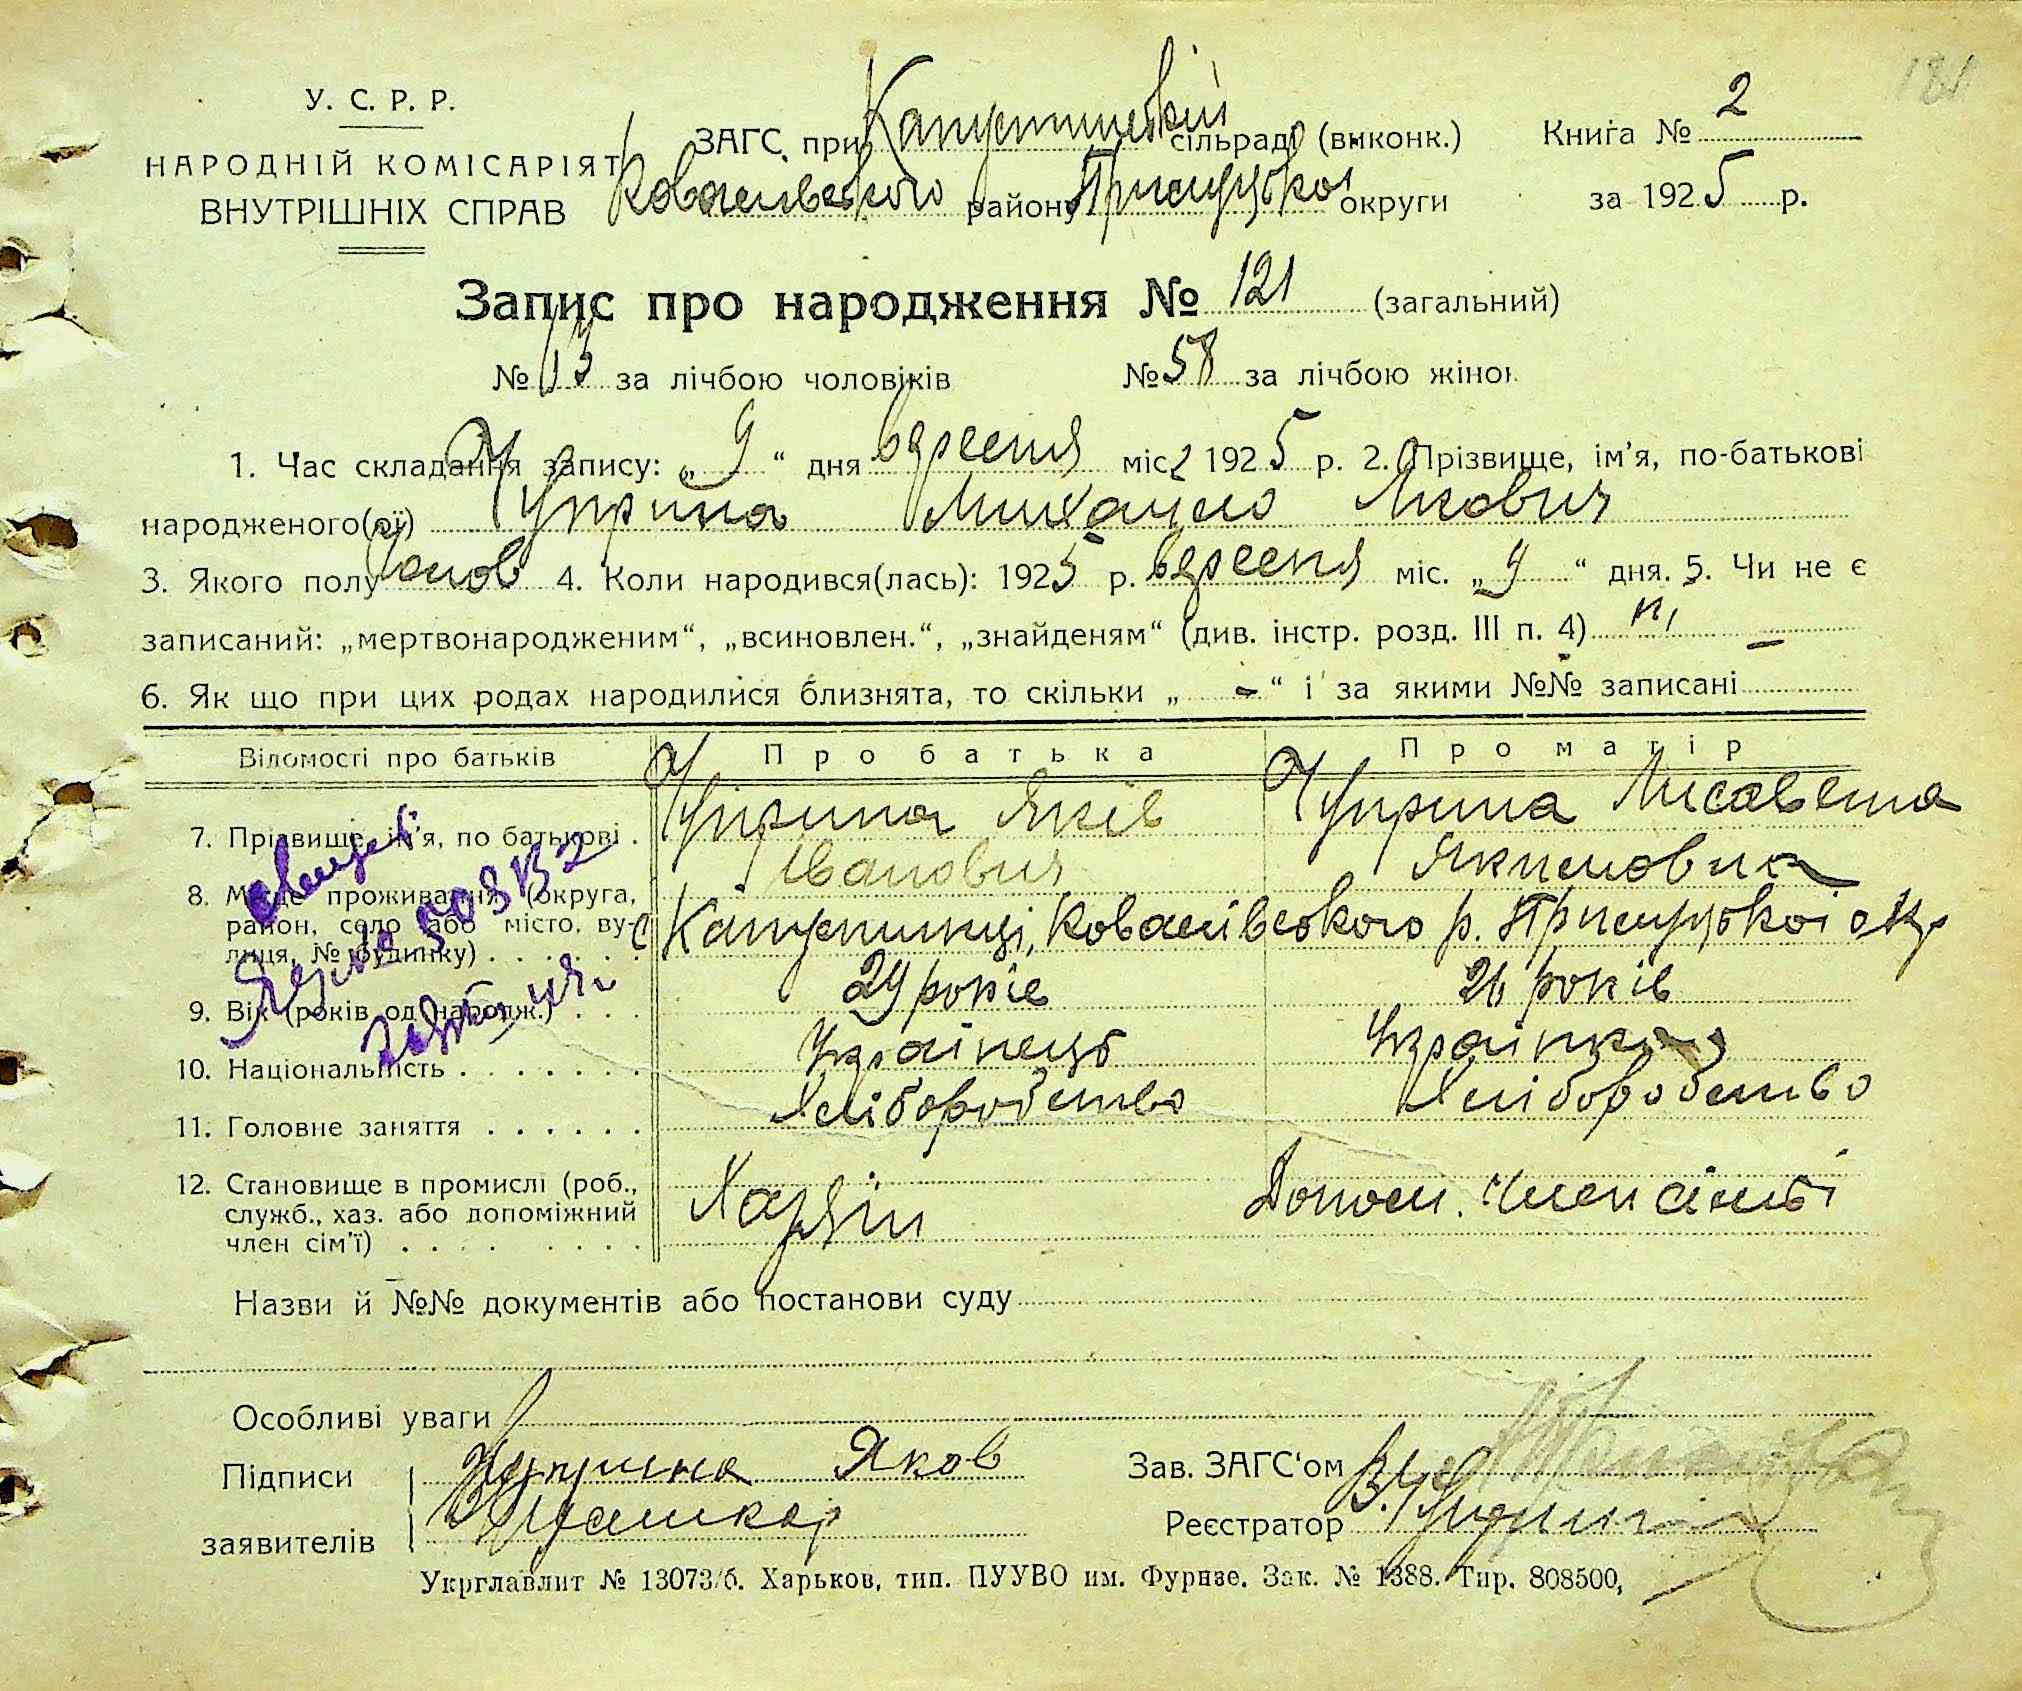 181
У. С. Р. Р.
НАРОДНІЙ КОМІСАРІЯТ
ВНУТРІШНІХ СПРАВ
ЗАГС при Капустинській сільраді (виконк.)
Ковалівського району Прилуцької округи
Книга № 2
за 1925 р.
Запис про народження № 121 (загальний)
№ 63 за лічбою чоловіків № 58 за лічбою жінок
1. Час складання запису: „ 9 “ дня вересня міс. 1925 р. 2. Прізвище, ім’я, по-батькові
народженого(ої) Чуприна Михайло Якович
3. Якого полу чолов 4. Коли народився(лась): 1925 р. вересня міс. „ 9 “ дня. 5. Чи не є
записаний: „мертвонародженим“, „всиновлен.“, „знайденям“ (див. інстр. розд. III п. 4) ні —
6. Як що при цих родах народилися близнята, то скільки „ - “ і за якими №№ записані
Відомості про батьків Про батька Про матір
7. Прізвище, ім’я, по батькові . Чуприна Яків Чуприна Лисавета
Іванович Якимовна
8. Місце проживання (округа,
район, село або місто, ву-
лиця, № будинку) . . . . . . с Капустинці, Ковалівського р. Прилуцької окр
9. Вік (років од народж.) . . . 29 років 26 років
10. Національність . . . . . . . Українець Українка
11. Головне заняття . . . . . . Хліборобство Хліборобство
12. Становище в промислі (роб.,
служб., хаз. або допоміжний
член сім’ї) . . . . . . . . Хазяїн Допом. член сімьї
Назви й №№ документів або постанови суду
Особливі уваги
Підписи Чуприна Яков
заявителів
Зав. ЗАГС‘ом
Реєстратор
Укрглавлит № 13073/б. Харьков, тип. ПУУВО им. Фурнзе. Зак. № 1388. Тир. 808500,